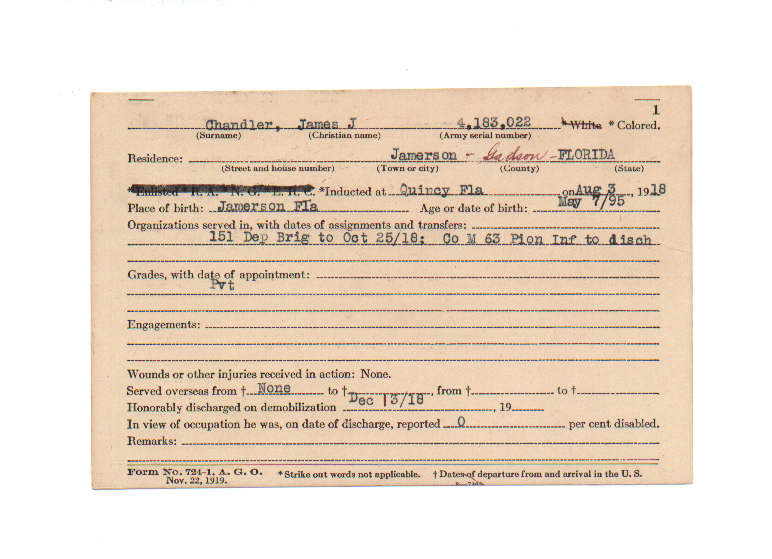 1
Chandler, James J 4,183,022 * White * Colored.
(Surname) (Christian name) (Army serial number)
Residence: Jamerson - Gadson - FLORIDA
(Street and house number) (Town or city) (County) (State)
*Enlisted R. A. N. G. E. R. C. *Inducted at Quincy Fla on Aug 3, 1918
Place of birth: Jamerson Fla Age or date of birth: May 7/95
Organizations served in, with dates of assignments and transfers:
151 Dep Brig to Oct 25/18; Co M 63 Pion Inf to disch
Grades, with date of appointment:
Pvt
Engagements:
Wounds or other injuries received in action: None.
Served overseas from † None to †, from † to †
Honorably discharged on demobilization Dec 13/18, 19
In view of occupation he was, on date of discharge, reported 0 per cent disabled.
Remarks:
Form No. 724-1, A. G. O. *Strike out words not applicable. † Dates of departure from and arrival in the U. S.
Nov. 22, 1919.